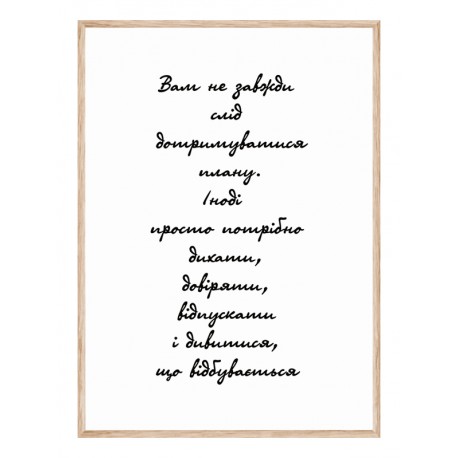 Вам не завжди
слід
дотримуватися
плану.
Іноді
просто потрібно
дихати,
довіряти,
відпускати
і дивитися,
що відбувається